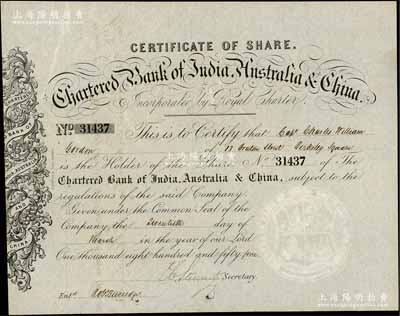 上海陽明拍賣
CERTIFICATE OF SHARE.
Chartered Bank of India, Australia & China.
Incorporated by Royal Charter.
No 31437 This is to Certify that Capt Charles William
Gordon of Berkeley Square
is the Holder of the Share No 31437 of The
Chartered Bank of India, Australia & China, subject to the
regulations of the said Company.
Given under the Common Seal of the
Company, the Twentieth day of
March in the year of our Lord
One thousand eight hundred and fifty four
Secretary.
Entd
CHARTERED
BANK OF
INDIA
AUSTRALIA
AND
CHINA
上海陽明拍賣